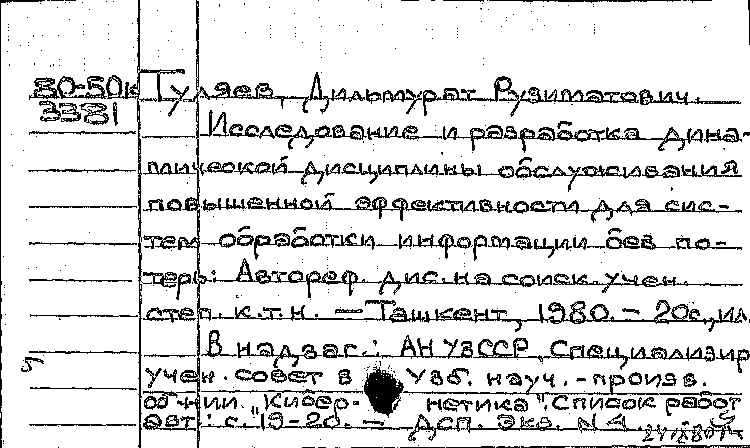 80-50к Туляев, Дильмурат Рузиматович.
3381
Исследование и разработка дина-
мической дисциплины обслуживания
повышенной эффективности для сис-
тем обработки информации без по-
терь: Автореф. дис. на соиск. учен.
степ. к.т.н. — Ташкент, 1980. — 20с., ил.
В надзаг.: АН УзССР, Специализир
5
учен. совет в Узб. науч.-произв.
об-нии "Кибернетика". Список работ
авт.: с. 19-20. — Дсп. Экз. N 4